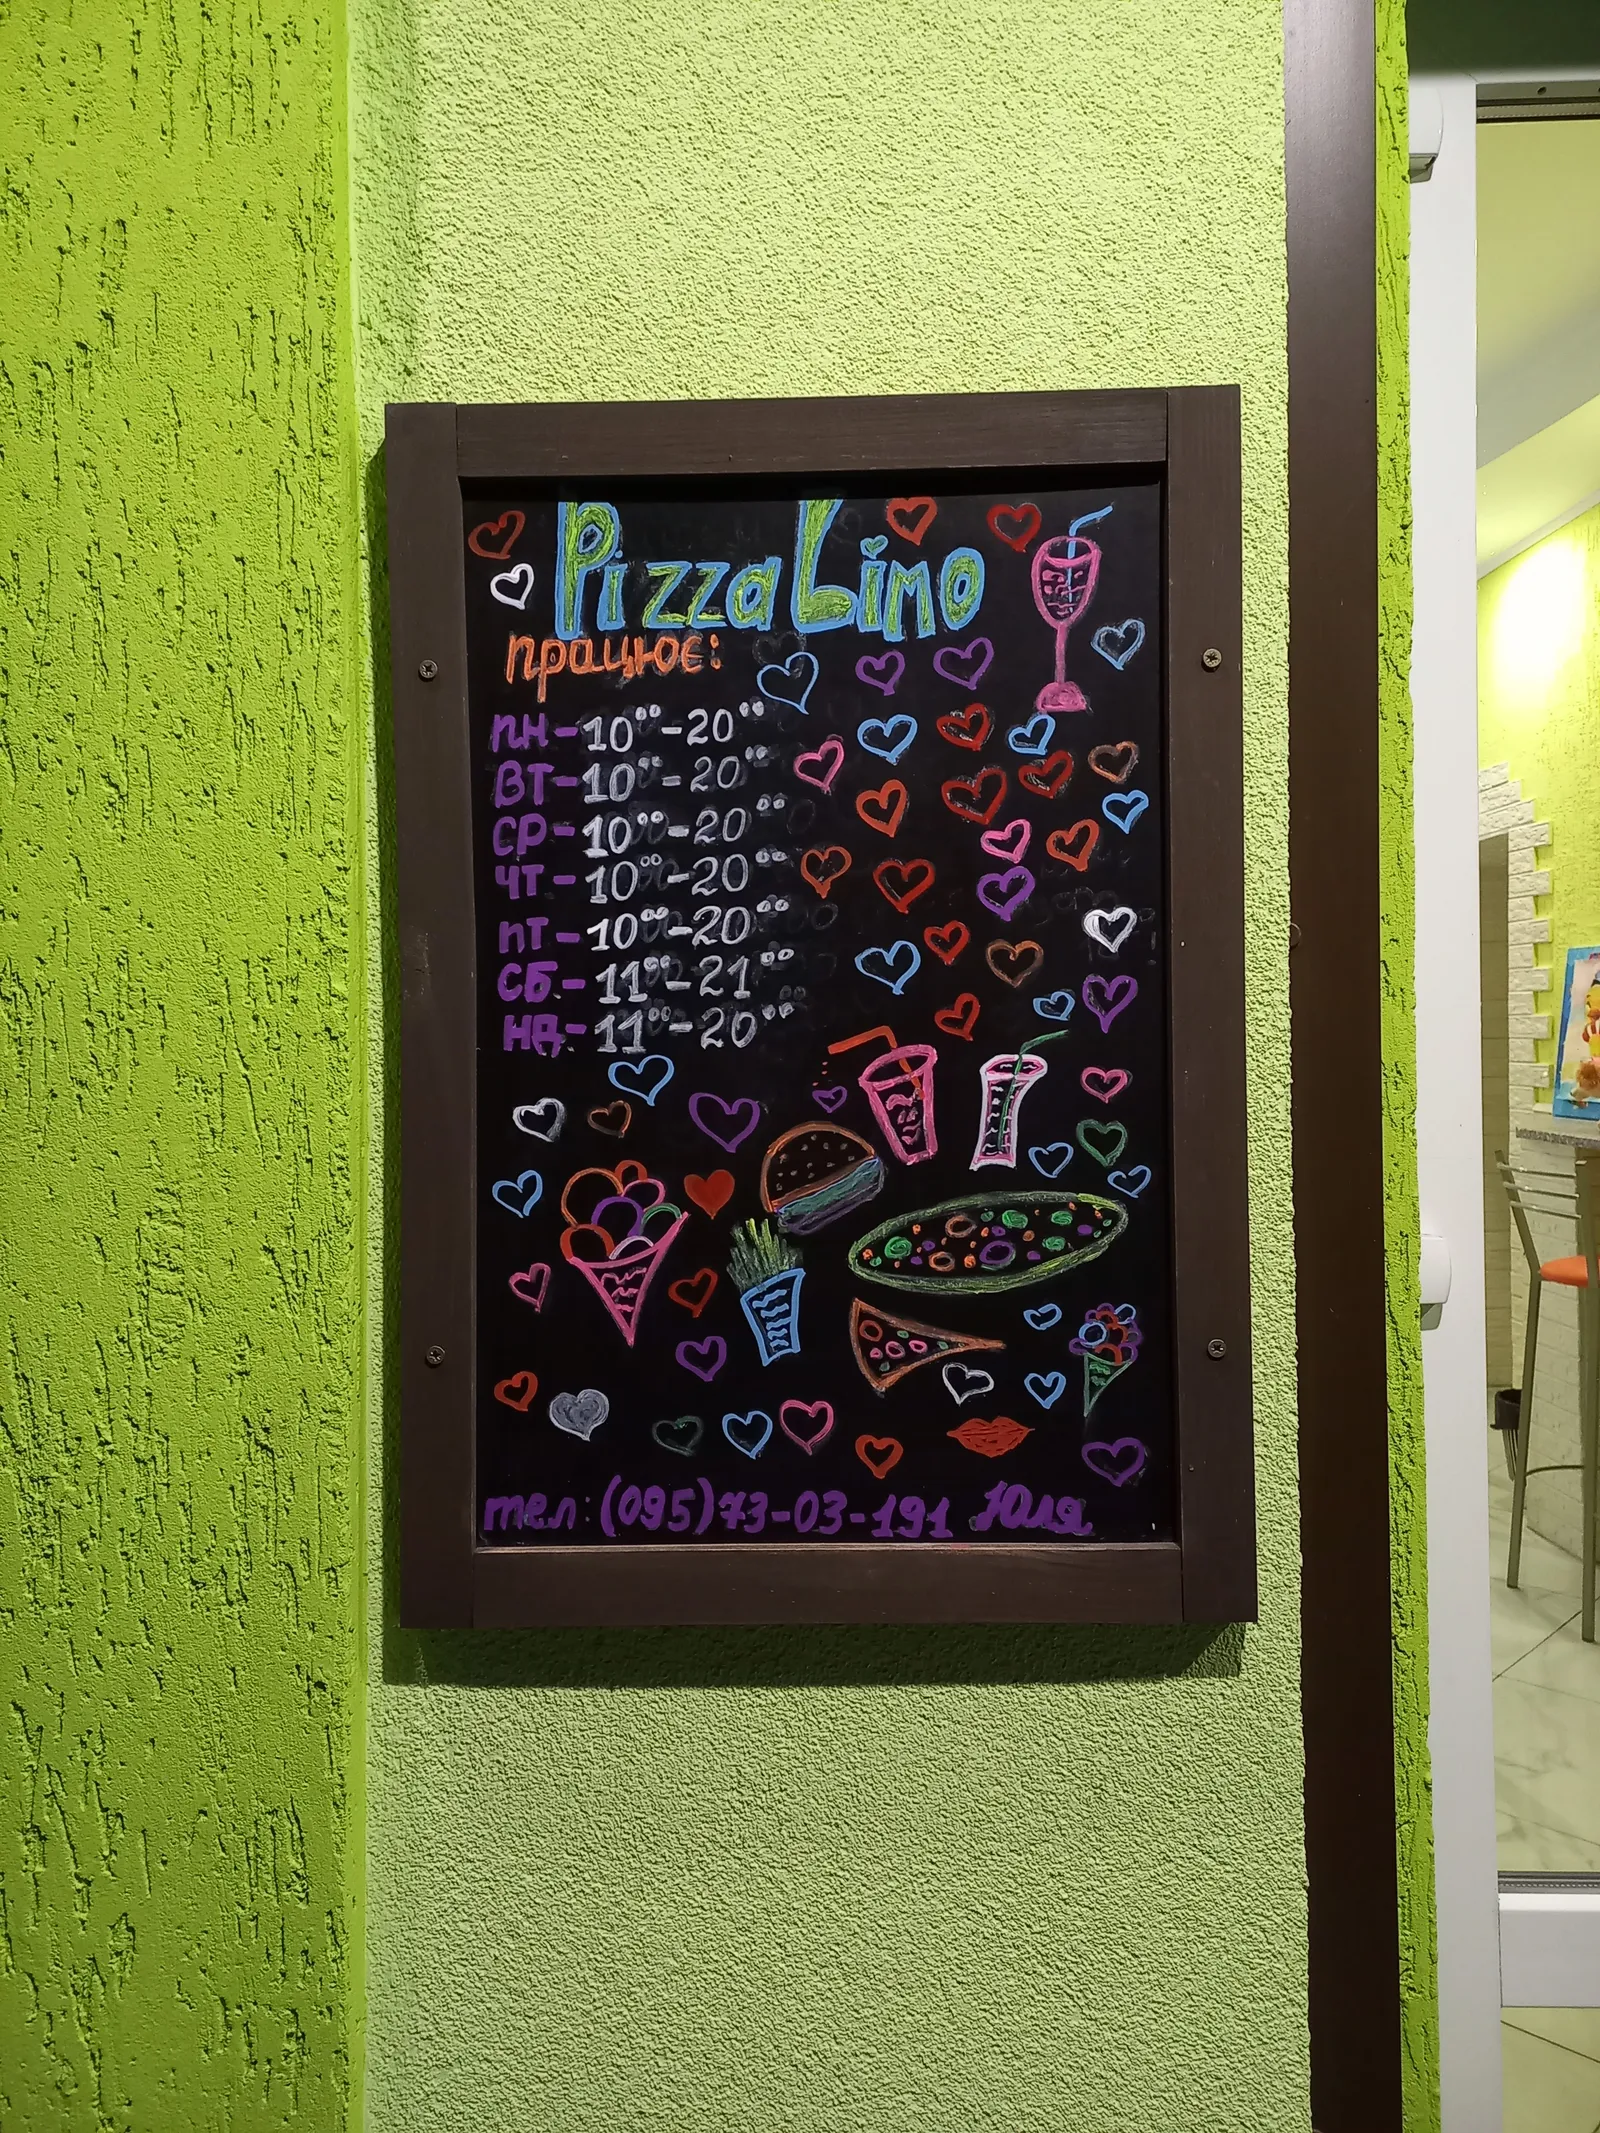 Pizza Limo
працює:
пн-10⁰⁰-20⁰⁰
ВТ-10⁰⁰-20⁰⁰
СР-10⁰⁰-20⁰⁰
ЧТ-10⁰⁰-20⁰⁰
ПТ-10⁰⁰-20⁰⁰
СБ-11⁰⁰-21⁰⁰
НД-11⁰⁰-20⁰⁰
тел:(095)73-03-191 Юля